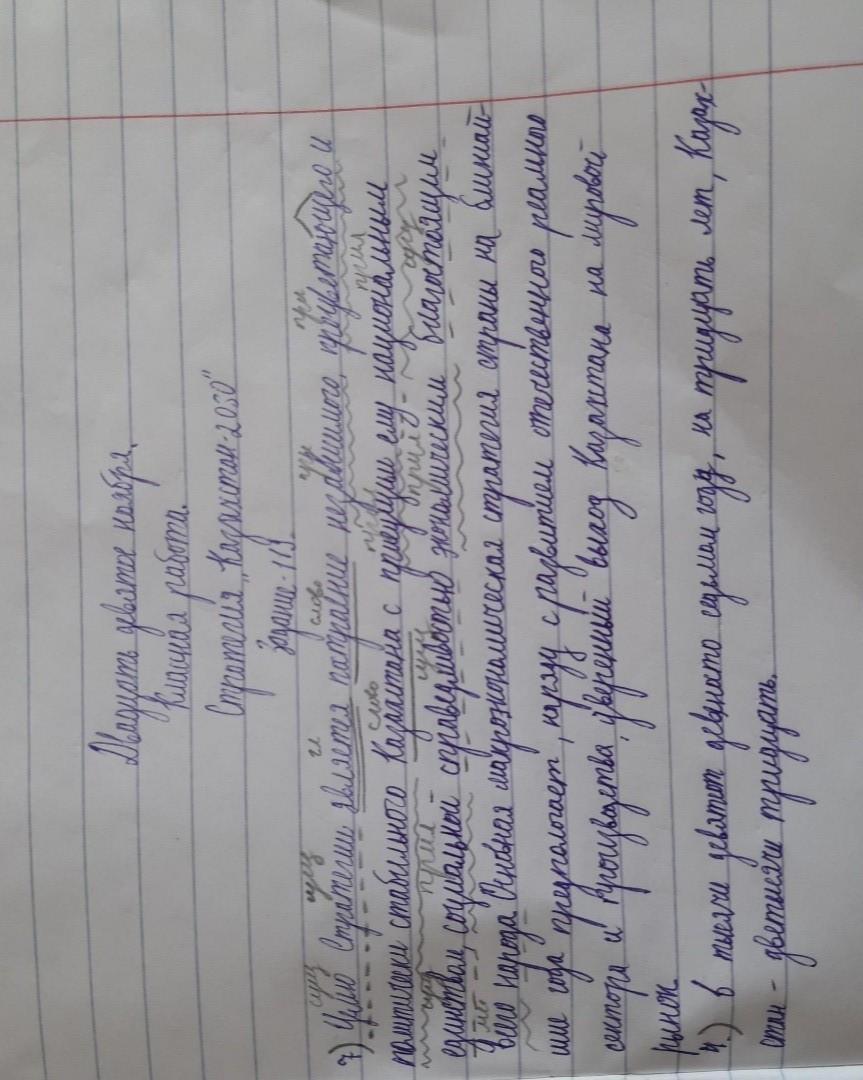 Двадцать девятое ноября.
Класная работа.
Стратегия „Казахстан-2030"
Задание-113.
сущ сущ гл слово сущ при
7) Целью Стратегии является построение независимого, процветающего и
слово прил
политически стабильного Казахстана с присущим ему национальным
сущ прил сущ прил сущ
единством, социальной справедливостью экономическим благосостоящим
мест
всего народа. Основная макроэкономическая стратегия страны на ближай-
шие года предпологает, наряду с развитием отечественного реального
сектора и производства, уверенный выход Казахстана на мировой
рынок
4.) в тысячи девятот девяносто седьмом году, на тридцать лет, Казах-
стан - дветысячи тридцать.